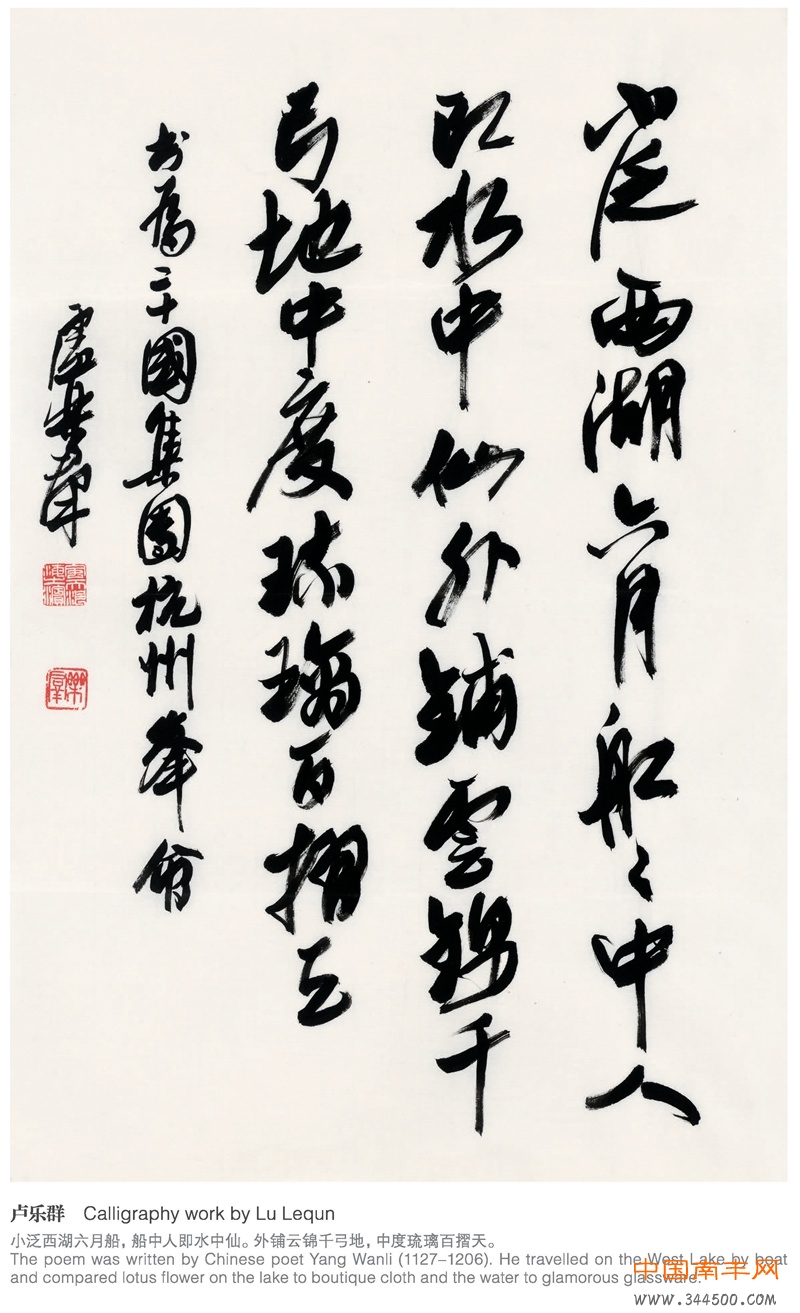 小泛西湖六月船〻中人
即水中仙外鋪雲錦千
弓地中度琉璃百摺天
書爲二十國集團杭州峰會
盧樂群
卢乐群 Calligraphy work by Lu Lequn
小泛西湖六月船，船中人即水中仙。外铺云锦千弓地，中度琉璃百摺天。
The poem was written by Chinese poet Yang Wanli (1127–1206). He travelled on the West Lake by boat
and compared lotus flower on the lake to boutique cloth and the water to glamorous glassware.
中国南丰网
www.344500.com